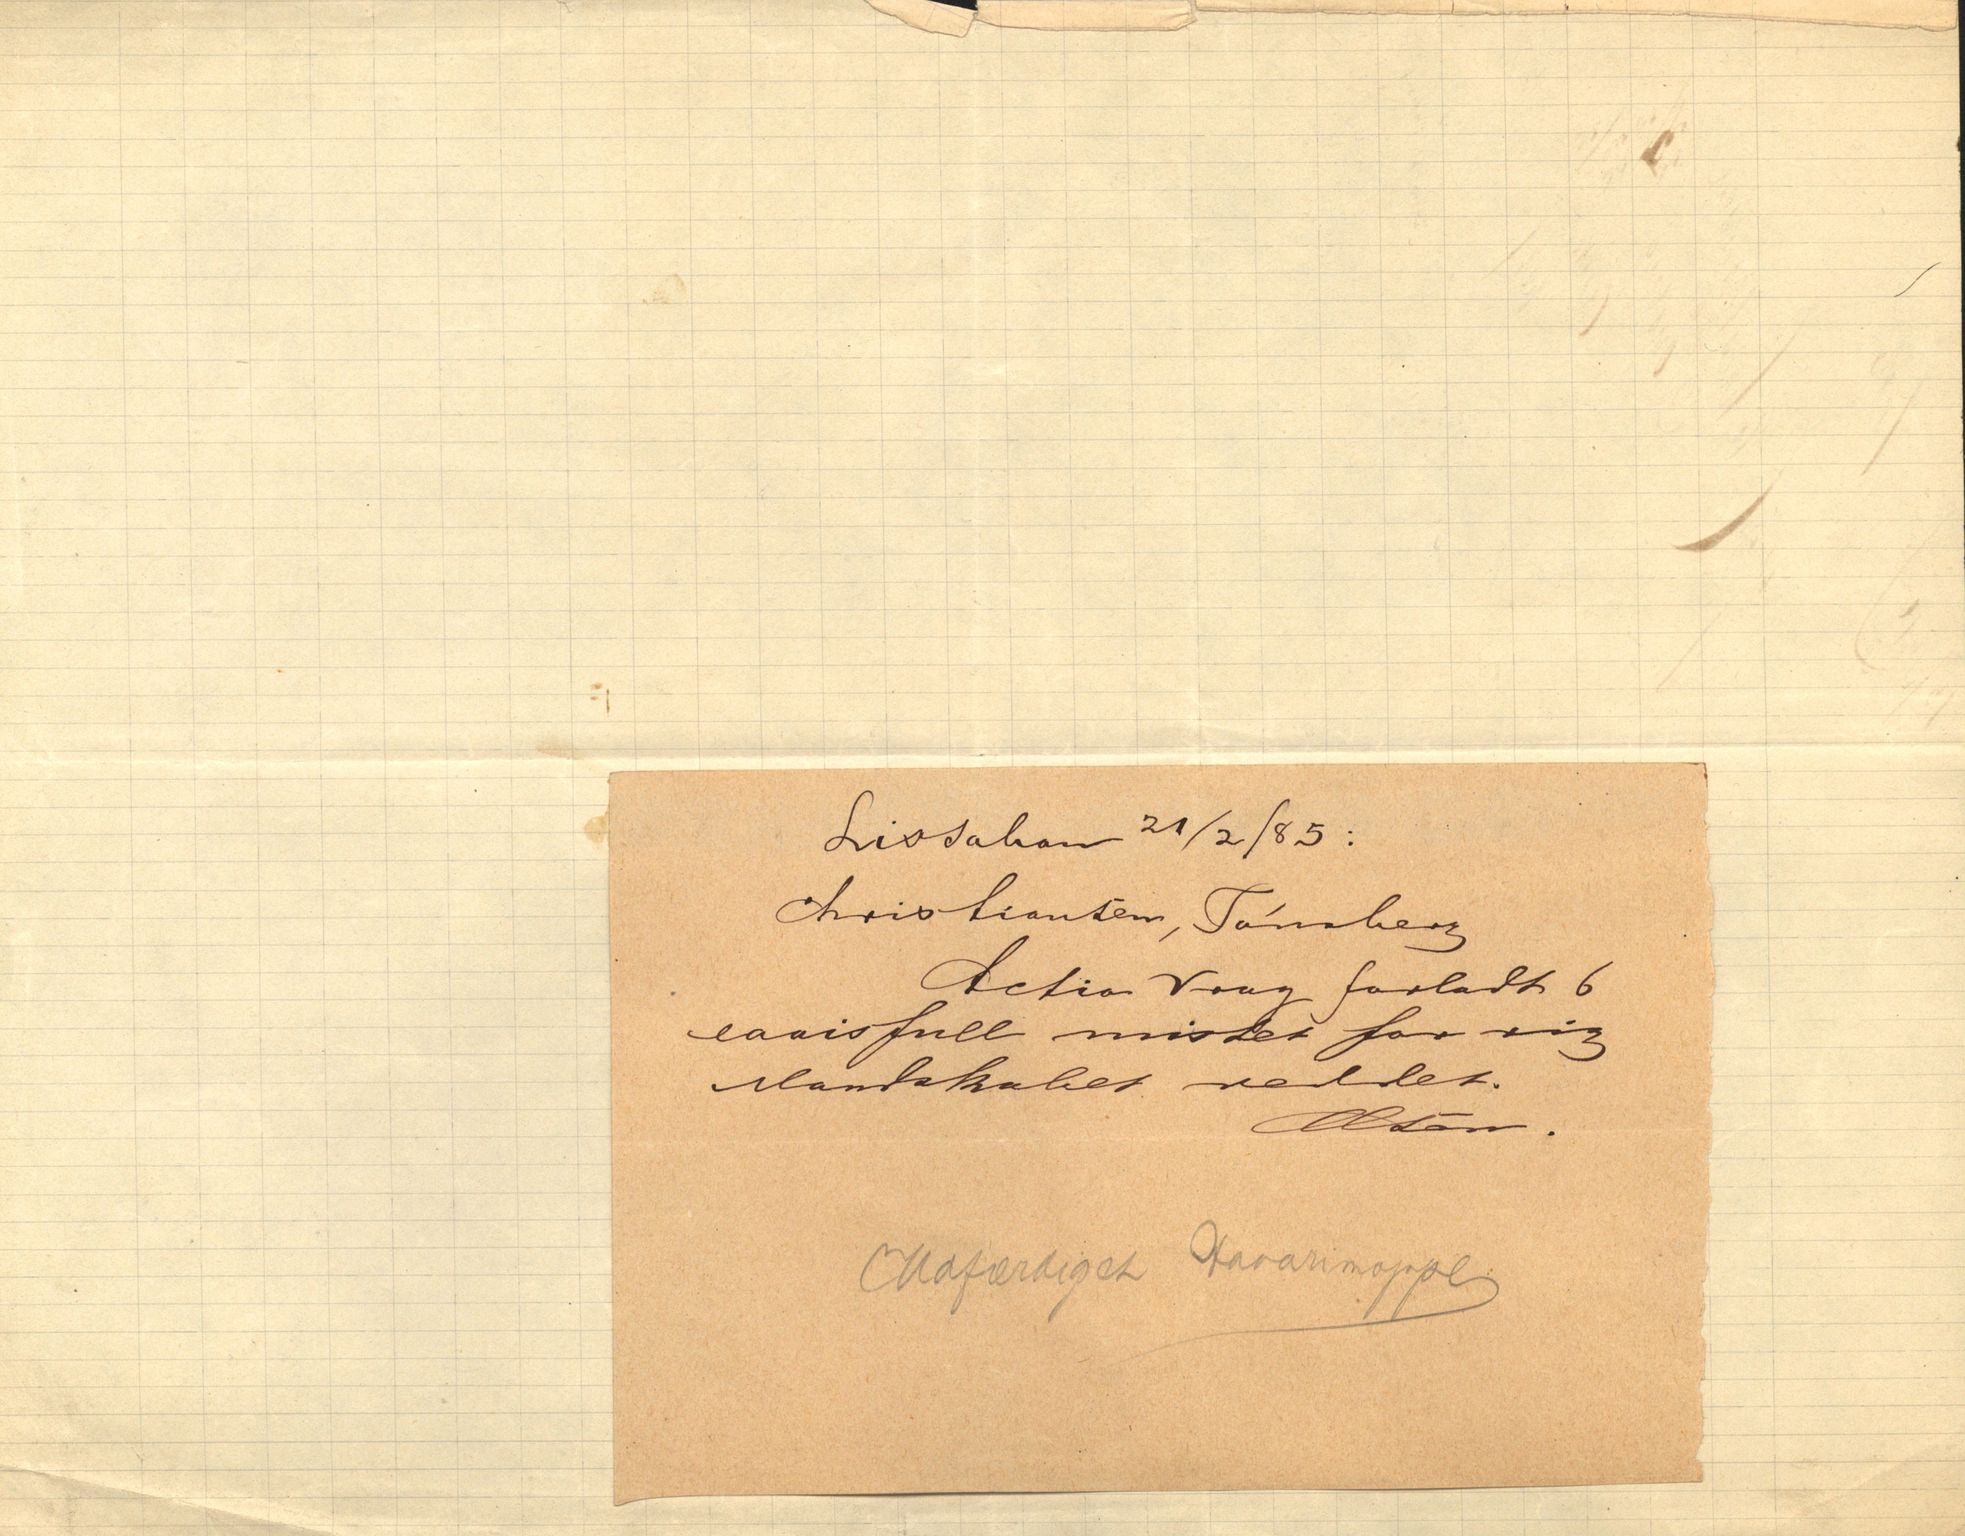 Lissabon 21/2/85:
Christiansen, Tönsberg
Actio Vrag forladt 6
mistet for rig
Mandskabet reddet.
Olsen.
Udfærdiget Havarimappe